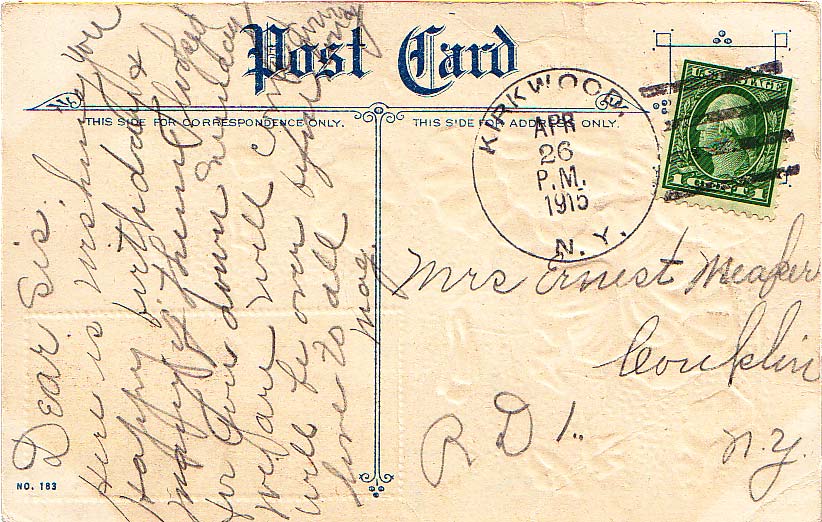 Post Card
THIS SIDE FOR CORRESPONDENCE ONLY.
THIS SIDE FOR ADDRESS ONLY.
KIRKWOOD,
APR
26
P.M.
1915
N.Y.
U.S. POSTAGE
1 1
Dear Sis.
Here is wishing you
Happy birthday &
many of them. Looked
for you down Sunday
we are well
will be over before long
love to all
May.
Mrs Ernest Meaker
Conklin
R D 1.
N.Y.
NO. 183